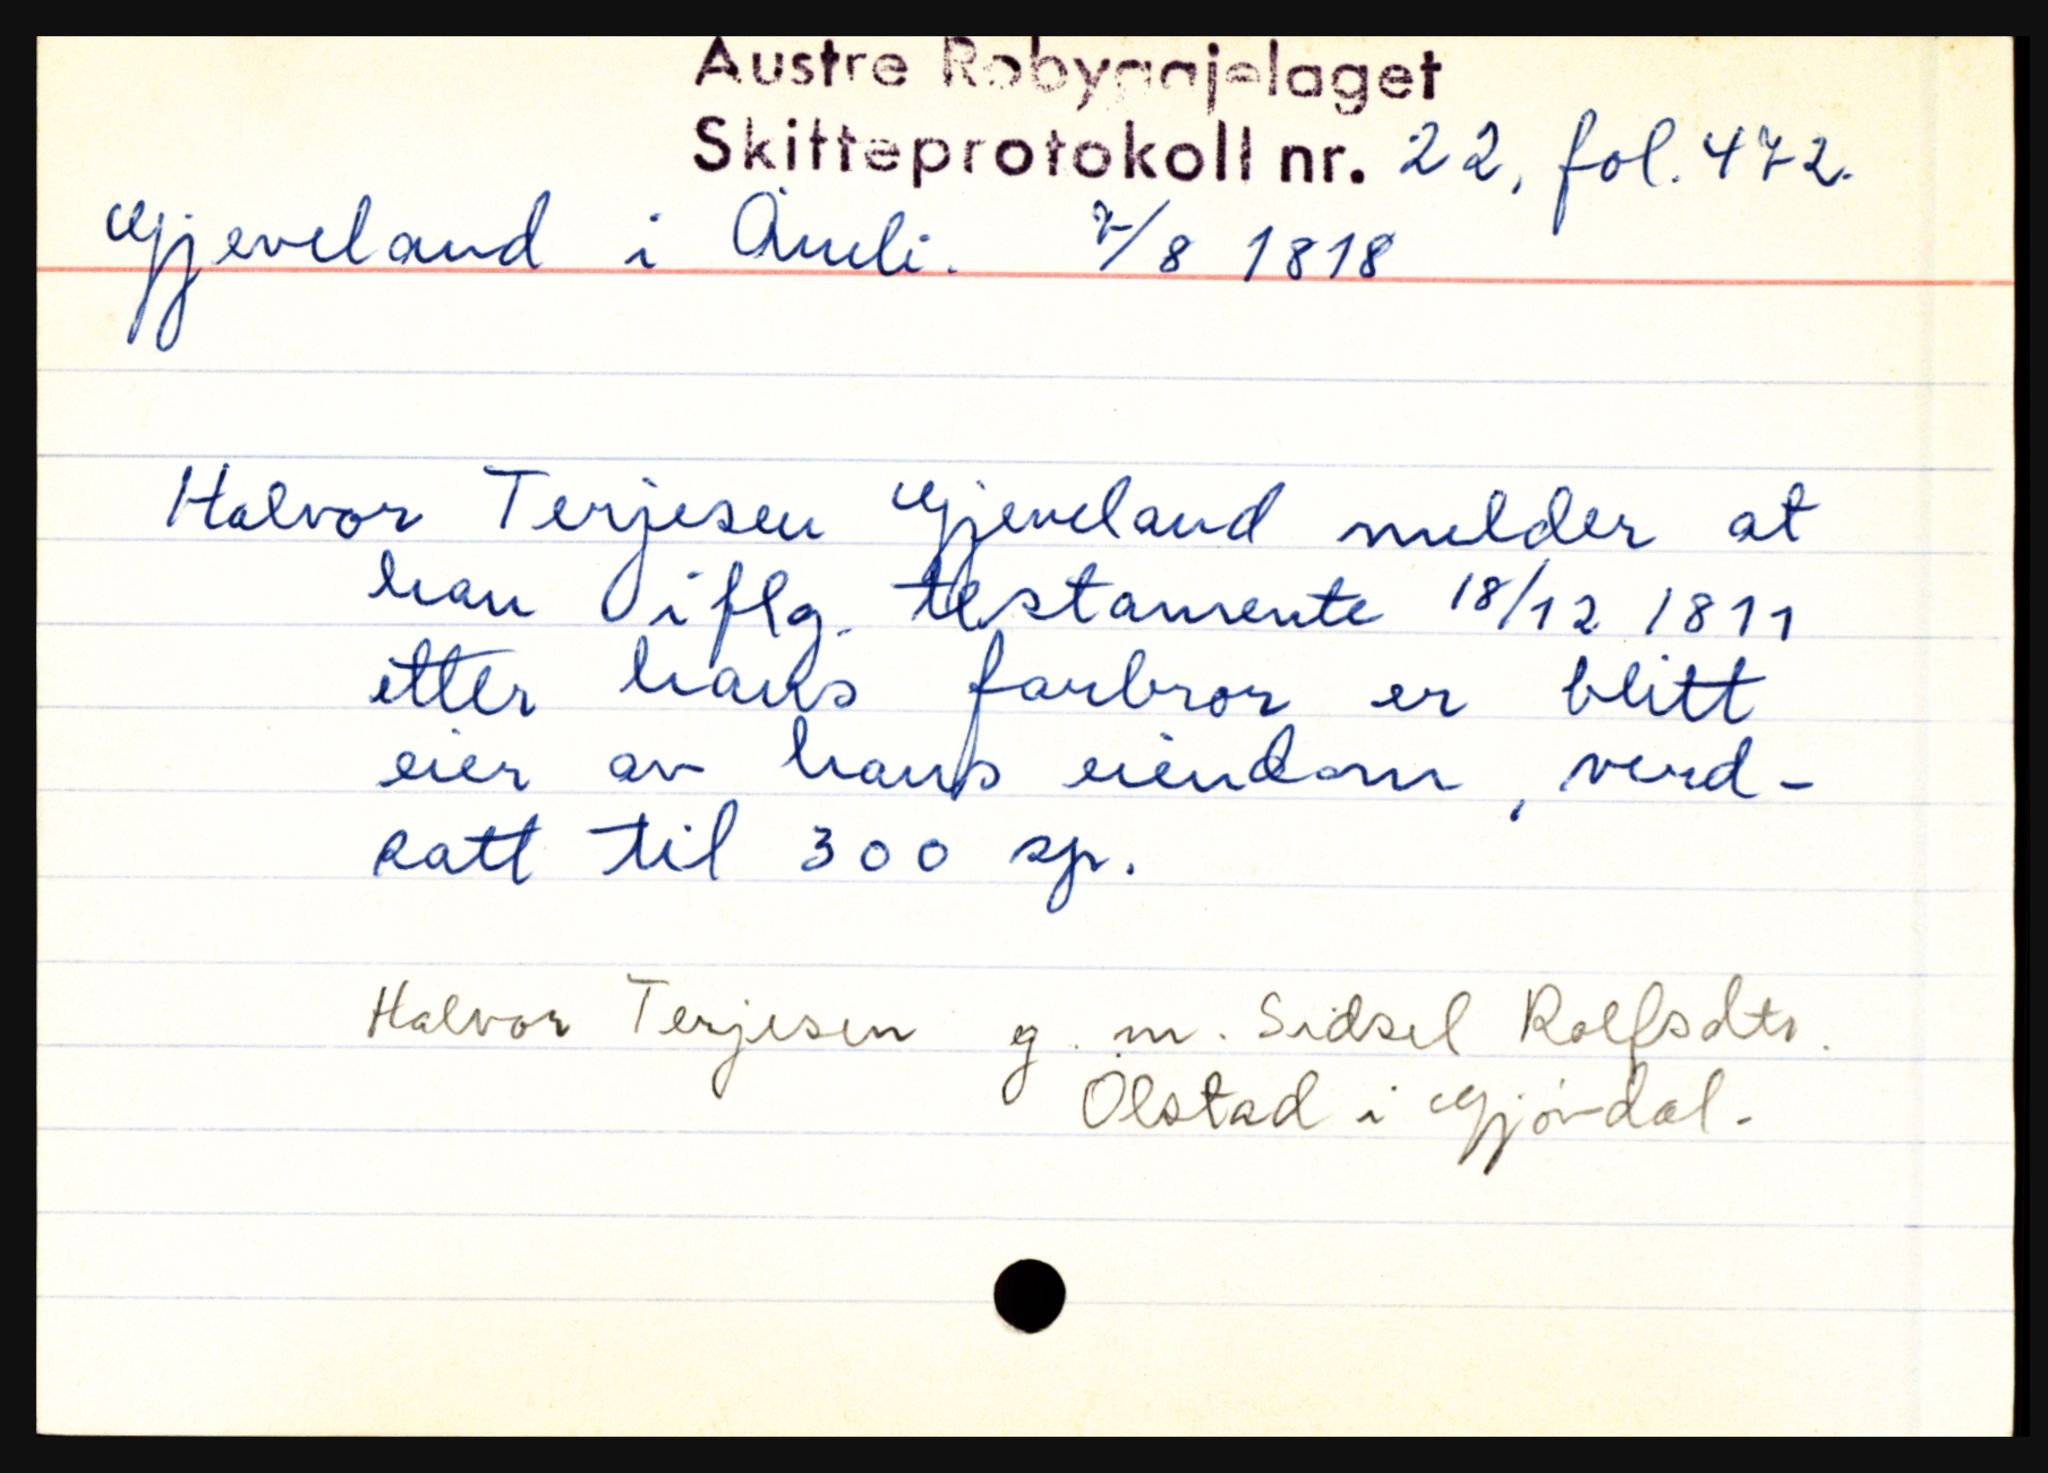 Austre Robyggjelaget
Skifteprotokoll nr. 22, fol. 472.
Gjeveland i Åmli. 7/8 1818
Halvor Terjesen Gjeveland melder at
han iflg. testamente 18/12 1811
etter hans farbror er blitt
eier av hans eiendom, verd-
satt til 300 sp.
Halvor Terjesen g. m. Sidsel Rolfsdtr.
Ølstad i Gjøvdal.